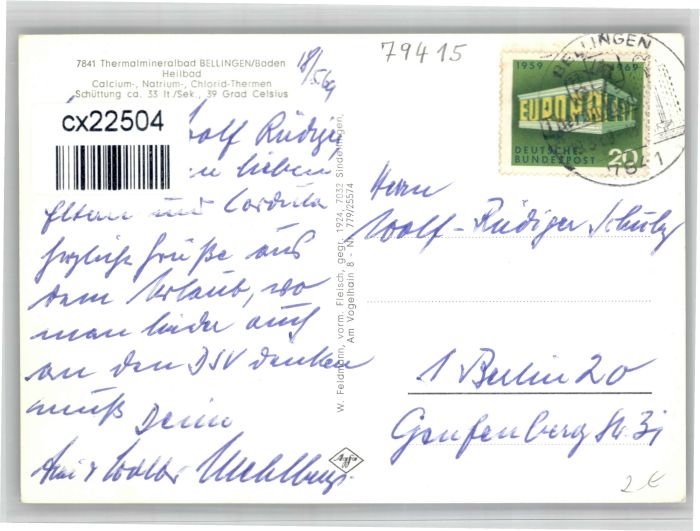 7841 Thermalmineralbad BELLINGEN/Baden
Heilbad
Calcium-, Natrium-, Chlorid-Thermen
Schüttung ca. 33 lt/Sek., 39 Grad Celsius
18/5.69
79415
cx22504
Wolf Rüdiger,
lieben
Eltern und Cordula
herzliche Grüße aus
dem Urlaub, wo
man leider auch
an den DSV denken
muß Deine
W. Feldmann, vorm. Fleisch, gegr. 1924, 7032 Sindelfingen,
Am Vogelhain 8 - Nr. 779/25574
Agfa
BELLINGEN
7841
1959 1969
EUROPA CEPT
DEUTSCHE
BUNDESPOST 20
Herrn
Wolf-Rüdiger Schulz
1 Berlin 20
Str. 31
2 €